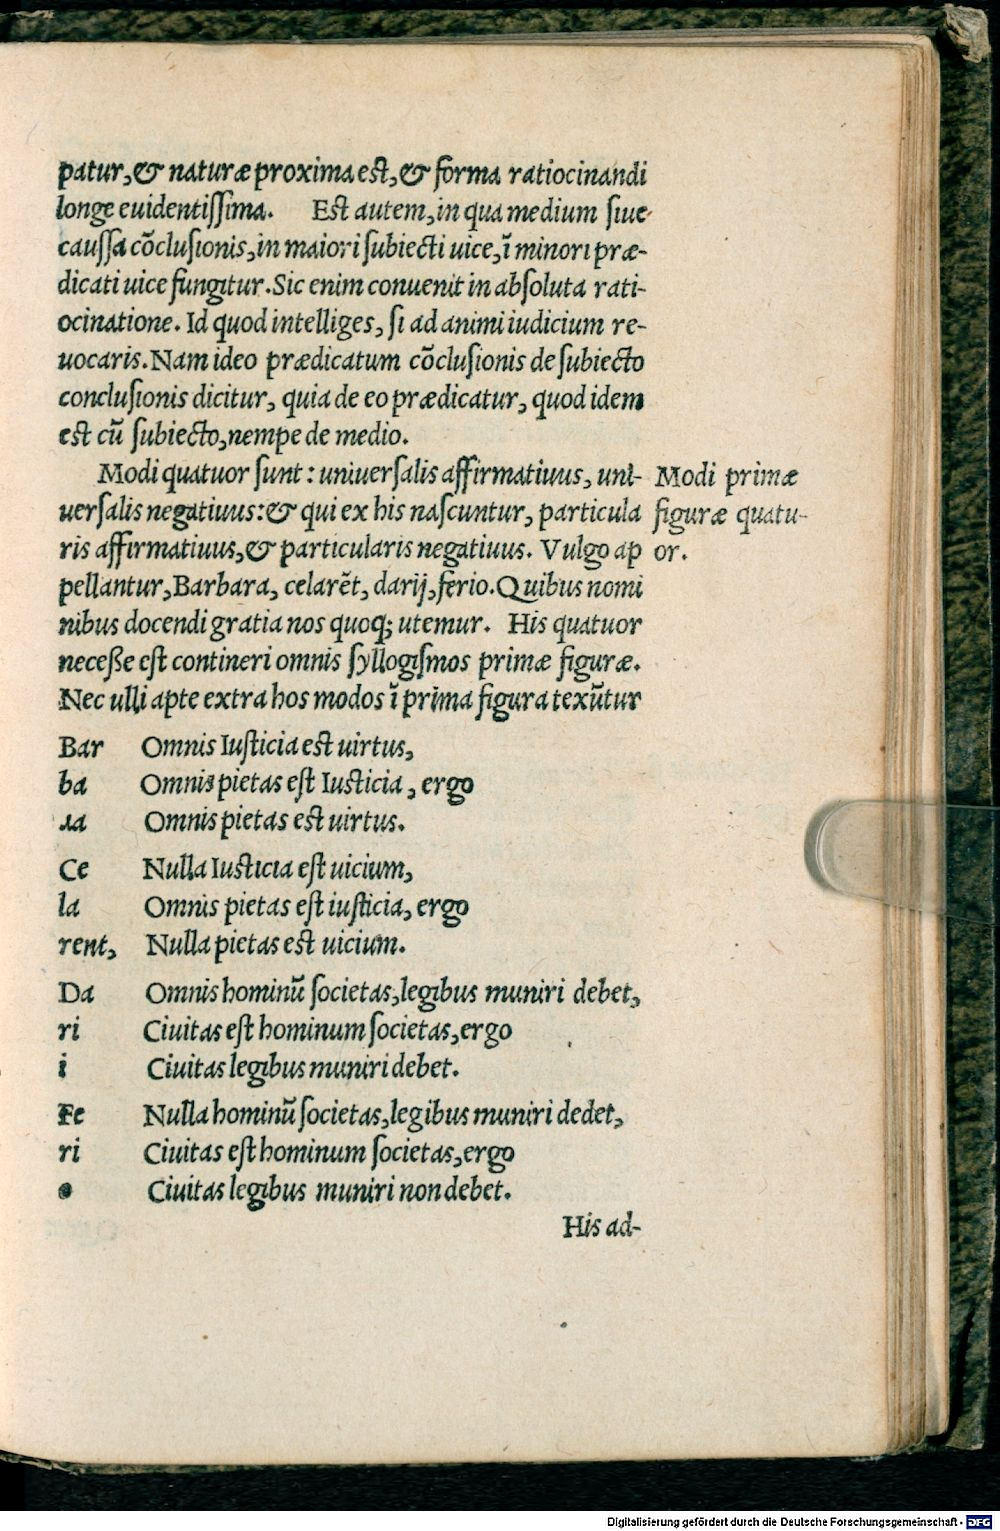 patur, & naturæ proxima est, & forma ratiocinandi
longe euidentissima. Est autem, in qua medium siue
caussa cōclusionis, in maiori subiecti uice, ī minori præ-
dicati uice fungitur. Sic enim conuenit in absoluta rati-
ocinatione. Id quod intelliges, si ad animi iudicium re-
uocaris. Nam ideo prædicatum cōclusionis de subiecto
conclusionis dicitur, quia de eo prædicatur, quod idem
est cū subiecto, nempe de medio.
Modi quatuor sunt: uniuersalis affirmatiuus, uni-
uersalis negatiuus: & qui ex his nascuntur, particula
ris affirmatiuus, & particularis negatiuus. Vulgo ap
pellantur, Barbara, celarēt, darij, ferio. Quibus nomi
nibus docendi gratia nos quoq; utemur. His quatuor
neceße est contineri omnis syllogismos primæ figuræ.
Nec ulli apte extra hos modos ī prima figura texūtur
Modi primæ
figuræ quatu-
or.
Bar Omnis Iusticia est uirtus,
ba Omnis pietas est Iusticia, ergo
ra Omnis pietas est uirtus.
Ce Nulla Iusticia est uicium,
la Omnis pietas est iusticia, ergo
rent, Nulla pietas est uicium.
Da Omnis hominū societas, legibus muniri debet,
ri Ciuitas est hominum societas, ergo
i Ciuitas legibus muniri debet.
Fe Nulla hominū societas, legibus muniri dedet,
ri Ciuitas est hominum societas, ergo
o Ciuitas legibus muniri non debet.
His ad-
Digitalisierung gefördert durch die Deutsche Forschungsgemeinschaft - DFG